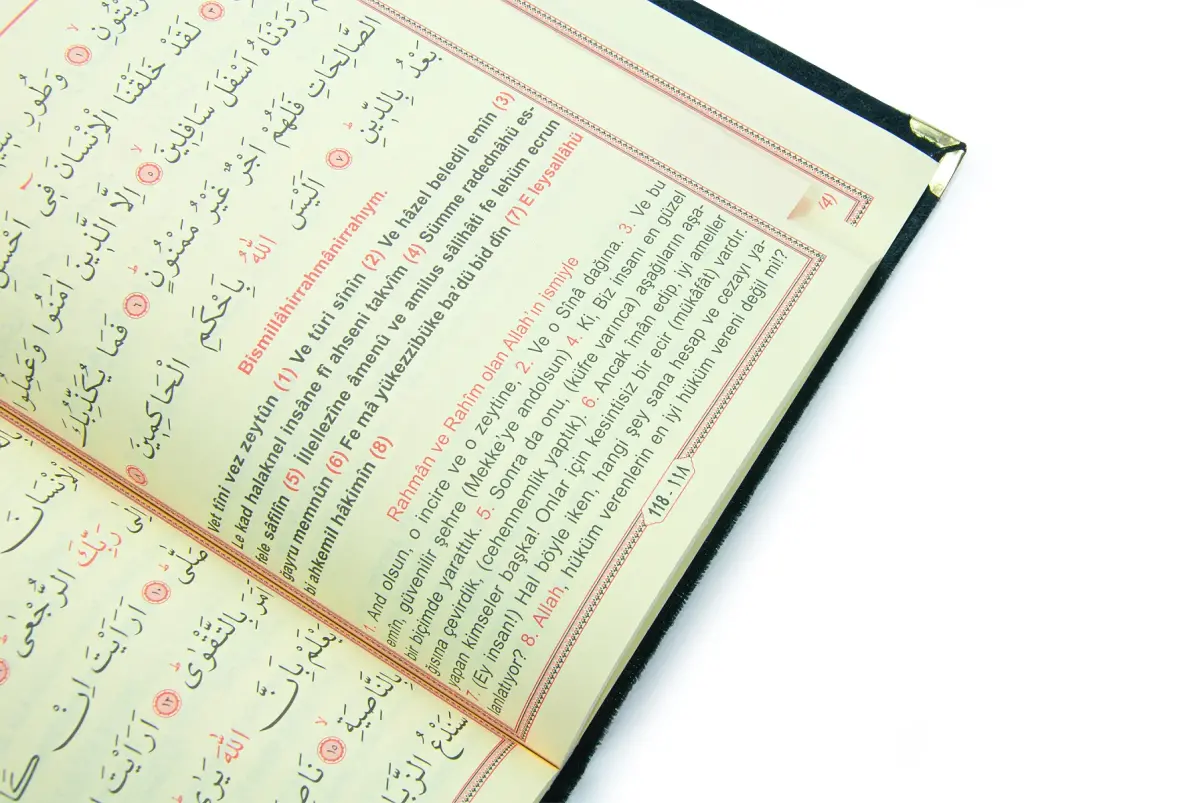 وَطُورِ
لَقَدْ خَلَقْنَا الْاِنْسَانَ فِى
رَدَدْنَاهُ اَسْفَلَ سَافِلِينَ ٥ اِلَّا الَّذِينَ اٰمَنُوا وَعَمِلُوا
الصَّالِحَاتِ فَلَهُمْ اَجْرٌ غَيْرُ مَمْنُونٍ ٦ فَمَا يُكَذِّبُكَ
بَعْدُ بِالدِّينِ ٧ اَلَيْسَ اللّٰهُ بِاَحْكَمِ الْحَاكِمِينَ ٨
Bismillâhirrahmânirrahıym.
Vet tîni vez zeytûn (1) Ve tûri sînîn (2) Ve hâzel beledil emîn (3)
Le kad halaknel insâne fî ahseni takvîm (4) Sümme radednâhü es-
fele sâfilîn (5) İllellezîne âmenû ve amilus sâlihâti fe lehüm ecrun
ğayru memnun (6) Fe mâ yükezzibüke ba'dü bid dîn (7) E leysallâhü
bi ahkemil hâkimîn (8)
Rahmân ve Rahîm olan Allah'ın ismiyle
1. And olsun, o incire ve o zeytine, 2. Ve o Sînâ dağına. 3. Ve bu
emin, güvenilir şehre (Mekke'ye andolsun) 4. Ki, Biz insanı en güzel
bir biçimde yarattık. 5. Sonra da onu, (küfre varınca) aşağıların aşa-
ğısına çevirdik, (cehennemlik yaptık). 6. Ancak îmân edip, iyi ameller
yapan kimseler başka! Onlar için kesintisiz bir ecir (mükâfât) vardır.
7. (Ey insan!) Hal böyle iken, hangi şey sana hesap ve cezayı ya-
lanlatıyor? 8. Allah, hüküm verenlerin en iyi hüküm vereni değil mi!?
118 - ١١٨
(4)
رَبِّكَ الرُّجْعٰى
صَلّٰى ١٠ اَرَاَيْتَ اِنْ
بِالتَّقْوٰى ١٢ اَرَاَيْتَ
يَعْلَمْ بِاَنَّ اللّٰهَ يَرٰى
بِالنَّاصِيَةِ ١٥
سَنَدْعُ